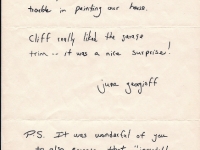 trouble in painting our house.
Cliff really liked the garage
trim -- it was a nice surprise!
june
P.S. It was wonderful of you
to also